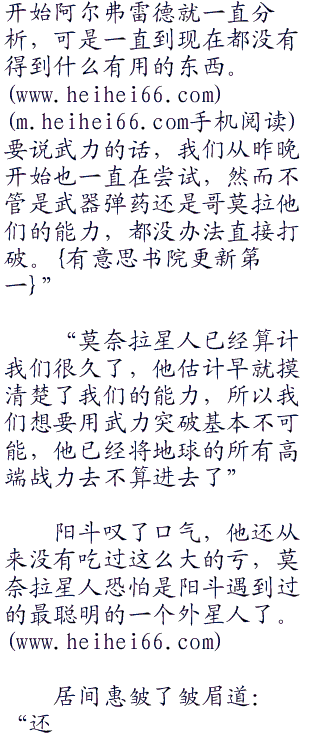 开始阿尔弗雷德就一直分
析，可是一直到现在都没有
得到什么有用的东西。
(www.heihei66.com)
(m.heihei66.com手机阅读)
要说武力的话，我们从昨晚
开始也一直在尝试，然而不
管是武器弹药还是哥莫拉他
们的能力，都没办法直接打
破。{有意思书院更新第
一}”
“莫奈拉星人已经算计
我们很久了，他估计早就摸
清楚了我们的能力，所以我
们想要用武力突破基本不可
能，他已经将地球的所有高
端战力去不算进去了”
阳斗叹了口气，他还从
来没有吃过这么大的亏，莫
奈拉星人恐怕是阳斗遇到过
的最聪明的一个外星人了。
(www.heihei66.com)
居间惠皱了皱眉道：
“还